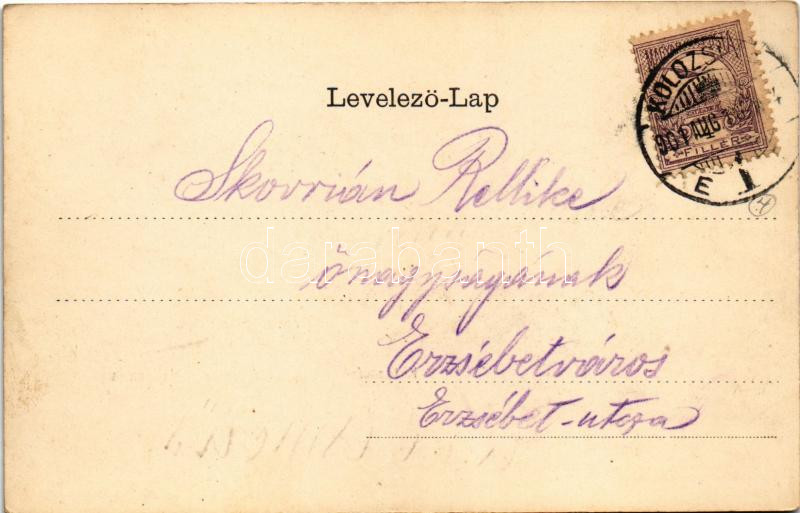 Levelező-Lap
MAGYAR
KOLOZSV
FILLÉR
E 1
4
Skovrián Rellike
őnagyságának
Erzsébetváros
Erzsébet-utcza
darabanth